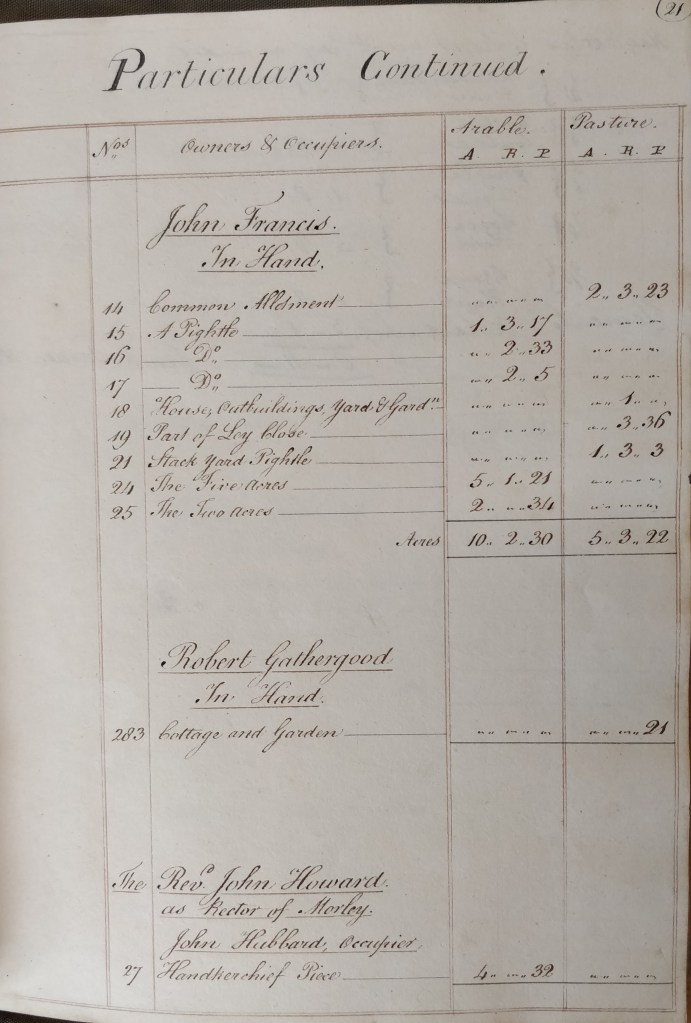 21
Particulars Continued.
Nos Owners & Occupiers. Arable. Pasture.
A. R. P A. R. P
John Francis.
In Hand.
14 Common Allotment „ „ „ 2„ 3„ 23
15 A Pightle 1„ 3„ 17 „ „ „
16 Do „ 2„ 33 „ „ „
17 Do „ 2„ 5 „ „ „
18 House, Outbuildings, Yard & Gardn „ „ „ „ 1„ „
19 Part of Ley Close „ „ „ „ 3„ 36
21 Stack Yard Pightle „ „ „ 1„ 3„ 3
24 The Five Acres 5„ 1„ 21 „ „ „
25 The Two Acres 2„ „ 34 „ „ „
Acres 10„ 2„ 30 5„ 3„ 22
Robert Gathergood
In Hand.
283 Cottage and Garden „ „ „ „ „ 21
The Revd. John Howard.
as Rector of Morley.
John Hubbard, Occupier
27 Handkerchief Piece 4„ „ 32 „ „ „